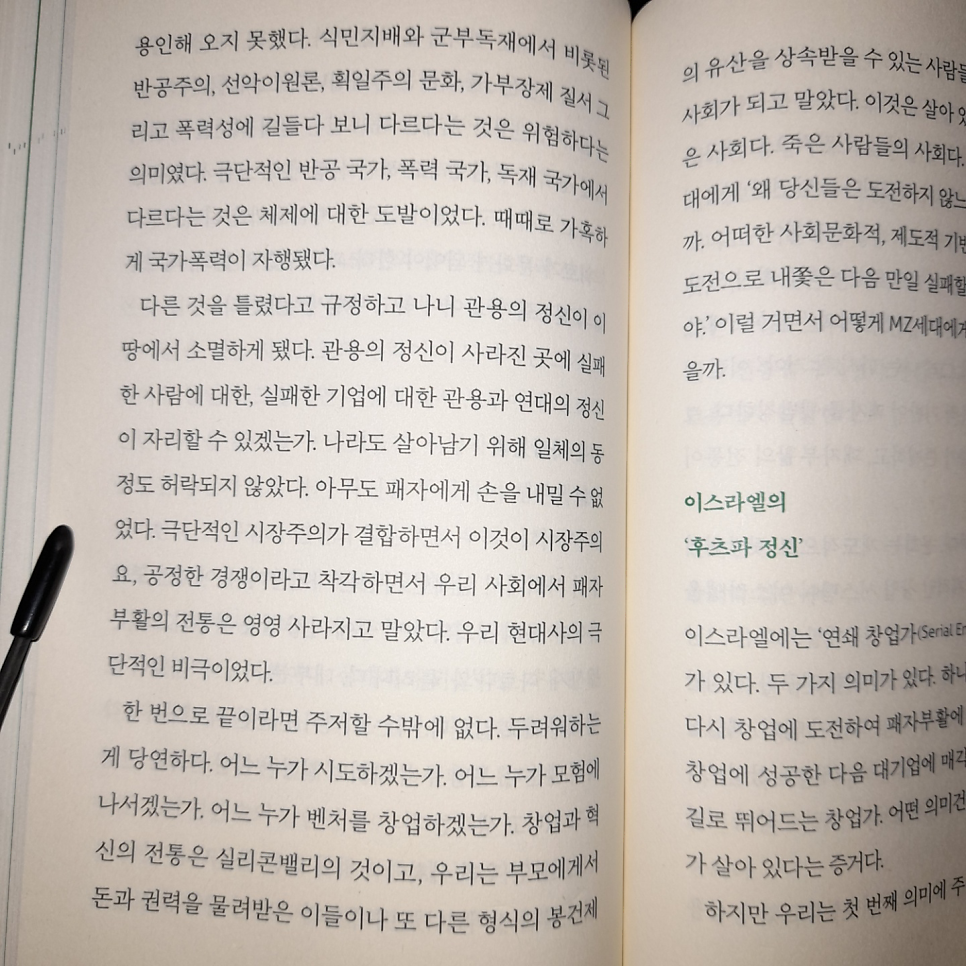 용인해 오지 못했다. 식민지배와 군부독재에서 비롯된
반공주의, 선악이원론, 획일주의 문화, 가부장제 질서 그
리고 폭력성에 길들다 보니 다르다는 것은 위험하다는
의미였다. 극단적인 반공 국가, 폭력 국가, 독재 국가에서
다르다는 것은 체제에 대한 도발이었다. 때때로 가혹하
게 국가폭력이 자행됐다.
다른 것을 틀렸다고 규정하고 나니 관용의 정신이 이
땅에서 소멸하게 됐다. 관용의 정신이 사라진 곳에 실패
한 사람에 대한, 실패한 기업에 대한 관용과 연대의 정신
이 자리할 수 있겠는가. 나라도 살아남기 위해 일체의 동
정도 허락되지 않았다. 아무도 패자에게 손을 내밀 수 없
었다. 극단적인 시장주의가 결합하면서 이것이 시장주의
요, 공정한 경쟁이라고 착각하면서 우리 사회에서 패자
부활의 전통은 영영 사라지고 말았다. 우리 현대사의 극
단적인 비극이었다.
한 번으로 끝이라면 주저할 수밖에 없다. 두려워하는
게 당연하다. 어느 누가 시도하겠는가. 어느 누가 모험에
나서겠는가. 어느 누가 벤처를 창업하겠는가. 창업과 혁
신의 전통은 실리콘밸리의 것이고, 우리는 부모에게서
돈과 권력을 물려받은 이들이나 또 다른 형식의 봉건제
의 유산을 상속받을 수 있는 사람들
사회가 되고 말았다. 이것은 살아
은 사회다. 죽은 사람들의 사회다.
대에게 '왜 당신들은 도전하지
까. 어떠한 사회문화적, 제도적
도전으로 내쫓은 다음 만일 실패할
야.' 이럴 거면서 어떻게 MZ세대에게
을까.
이스라엘의
'후츠파 정신'
이스라엘에는 '연쇄 창업가(Serial
가 있다. 두 가지 의미가 있다.
다시 창업에 도전하여 패자부활에
창업에 성공한 다음 대기업에 매각
길로 뛰어드는 창업가. 어떤 의미건
가 살아 있다는 증거다.
하지만 우리는 첫 번째 의미에